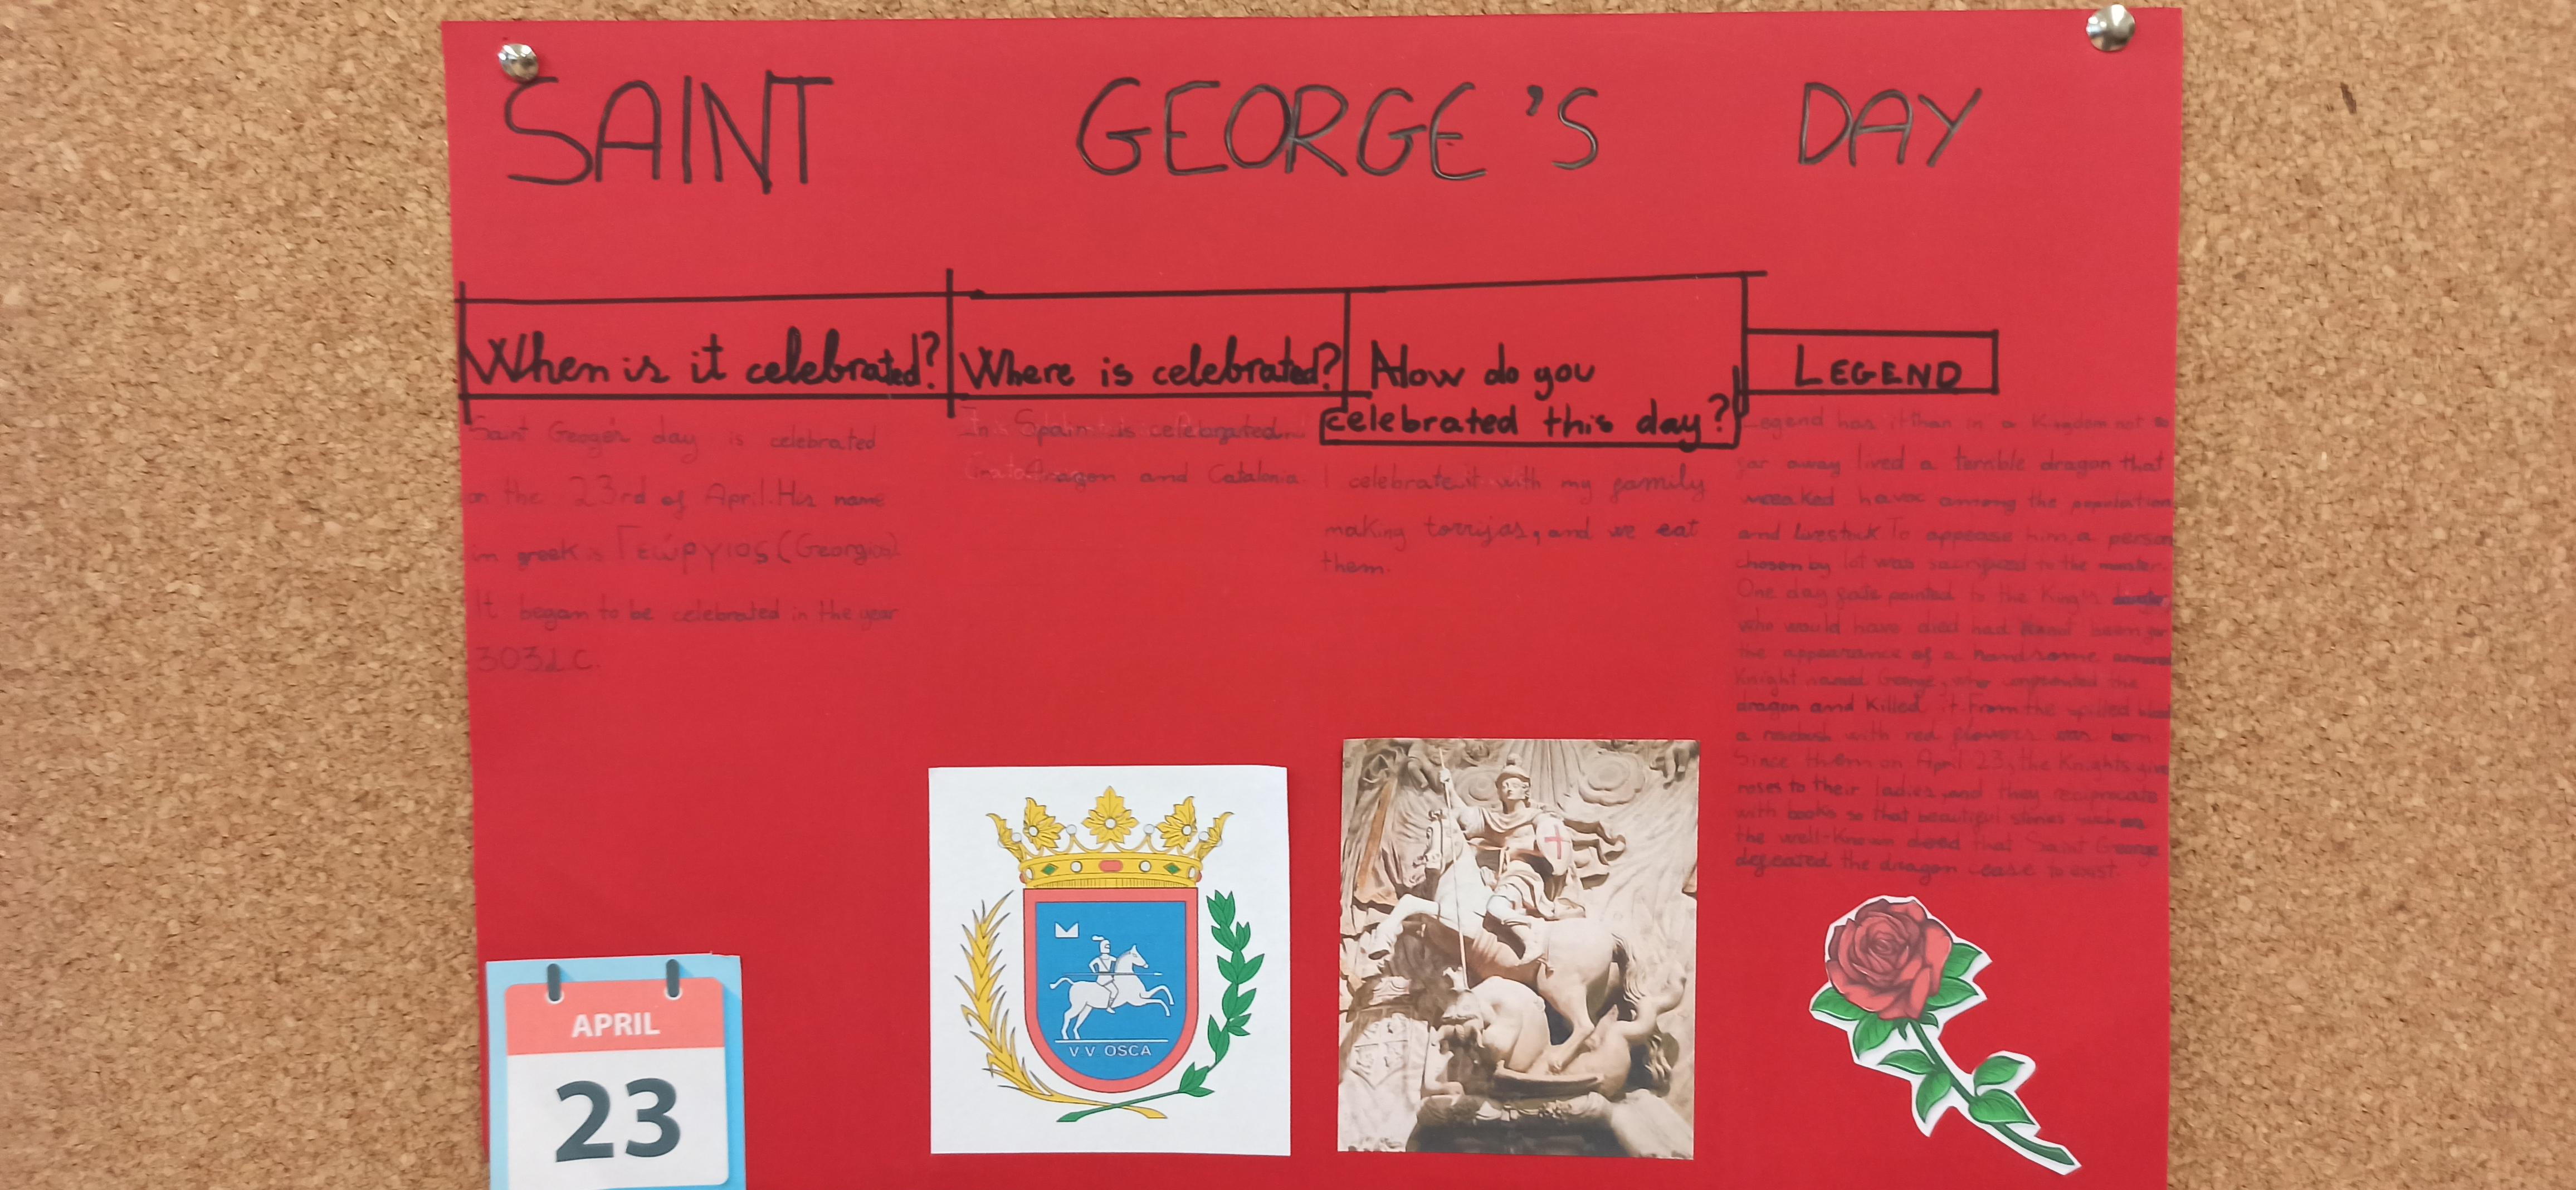 SAINT GEORGE'S DAY
When is it celebrated?
Saint Geoge's day is celebrated
on the 23rd of April. His name
in greek is Γεώργιος (Georgios)
It began to be celebrated in the year
303
Where is celebrated?
In Spain is celebrated
Aragon and Catalonia
How do you
celebrated this day?
I celebrate it with my family
making torrijas, and we eat
them.
LEGEND
Legend has it than in a Kingdom not so
far away lived a terrible dragon that
havoc among the population
and To appease him, a person
chosen by lot was sacrificed to the
One day fate pointed to the King's
who would have died had not been for
the appearance of a handsome
Knight named George, who confronted the
dragon and Killed it. From the spilled blood
a rosebush with red flowers was born
Since them on April 23, the Knights give
roses to their ladies, and they reciprocate
with books so that beautiful stories such as
the well-Known that Saint George
the dragon cease to exist.
APRIL
23
V V OSCA